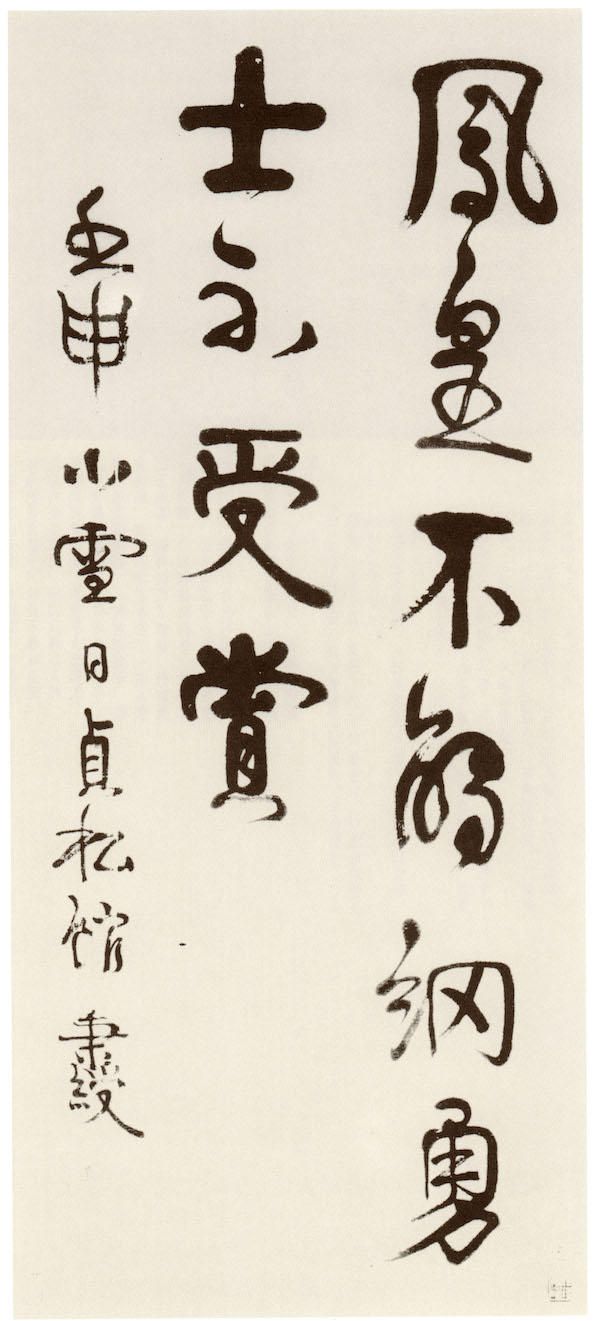 鳳皇不網勇
士不受賞
壬申小雪日貞松館秉綬